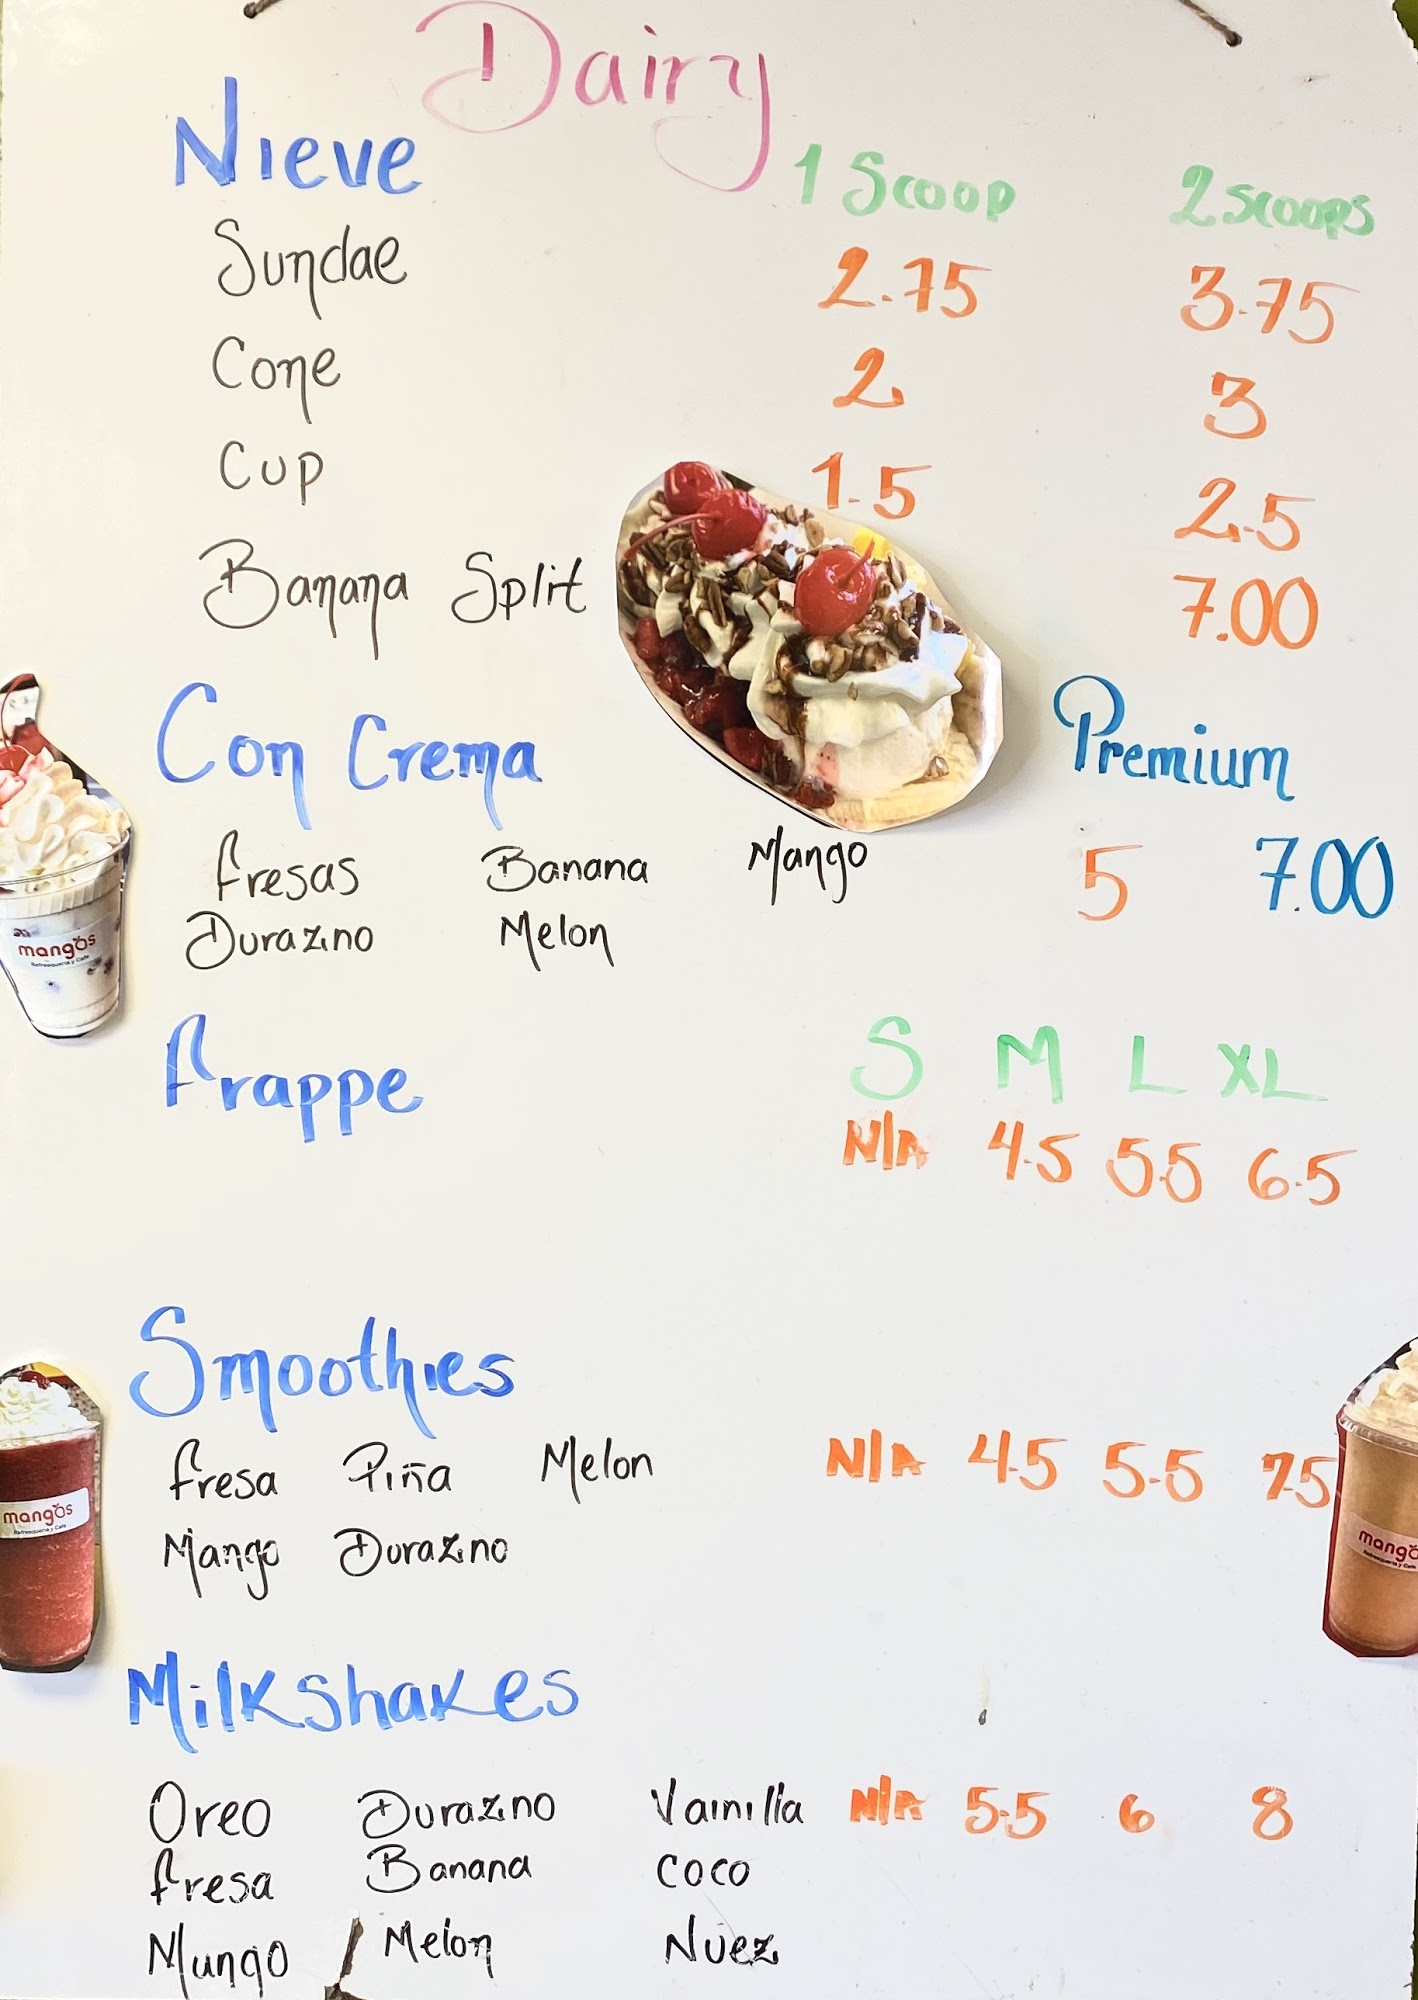 Dairy
Nieve 1 Scoop 2 Scoops
Sundae 2.75 3.75
Cone 2 3
Cup 1.5 2.5
Banana Split 7.00
Con Crema Premium
Fresas Banana Mango 5 7.00
Durazno Melon
mangos
Refresquería y Café
Frappe S M L XL
N/A 4.5 5.5 6.5
Smoothies
Fresa Piña Melon N/A 4.5 5.5 7.5
Mango Durazno
mangos
Refresquería y Café
mango
Refresquería y Café
Milkshakes
Oreo Durazno Vainilla N/A 5.5 6 8
Fresa Banana Coco
Mango Melon Nuez